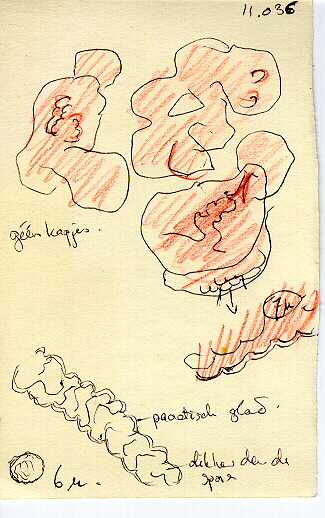 11.036
géén kapjes.
7µ
praktisch glad.
dikker dan de
spore
6 µ.